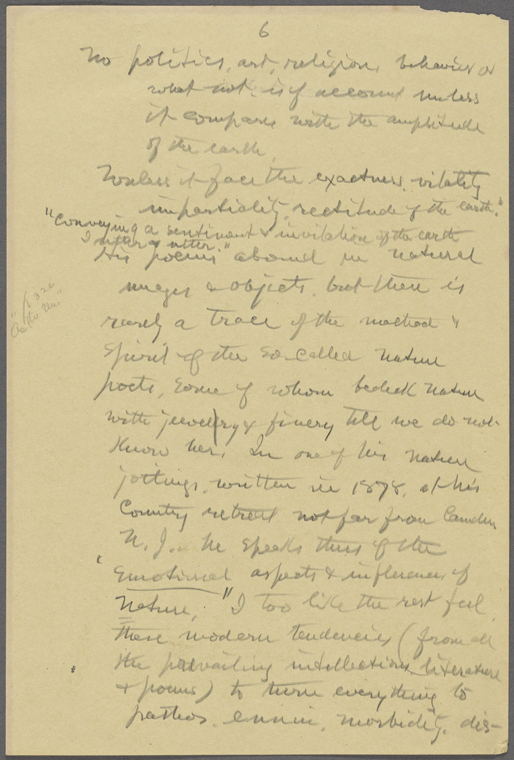 6
No politics, art, religion, behavior or
what not, is of account unless
it compare with the amplitude
of the earth,
Unless it face the exactness, vitality
impartiality, rectitude of the earth."
"Conveying a sentiment & invitation of the earth
I utter & utter."
His poems abound in natural
images & objects, but there is
rarely a trace of the method &
spirit of the so-called nature
poets, some of whom bedeck nature
with jewelry & finery till we do not
know her. In one of his nature
jottings, written in 1878, at his
Country retreat not far from Camden
N. J., he speaks thus of the
"emotional aspects & influences of
Nature; "I too like the rest feel
these modern tendencies (from all
the prevailing intellections, literature
& poems) to turn everything to
pathos, ennui, morbidity, dis-